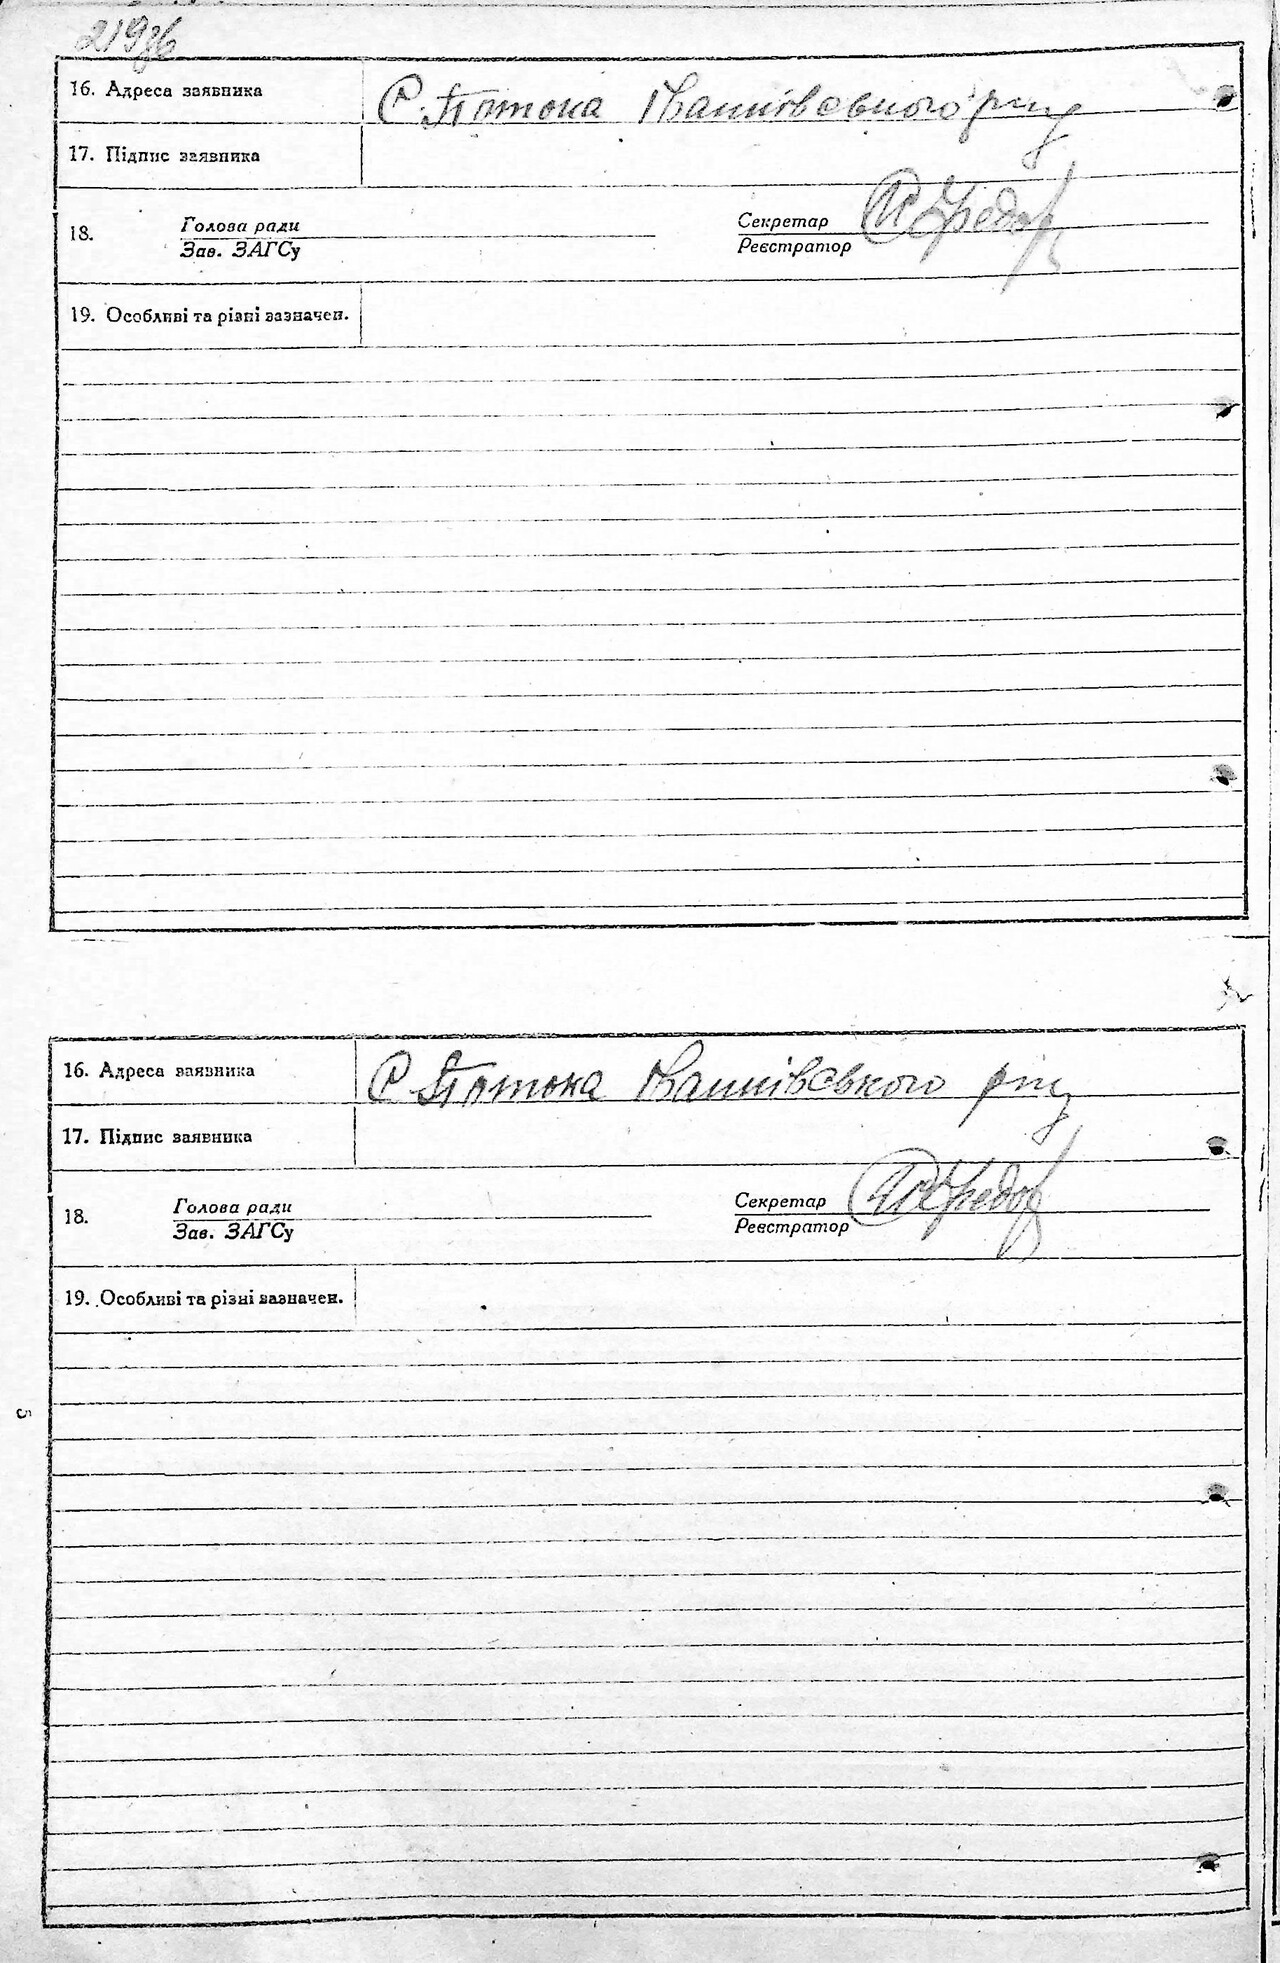 219зв
16. Адреса заявника С. Потока Ганнівського р-ну
17. Підпис заявника
18. Голова ради Секретар
Зав. ЗАГСу Реєстратор
19. Особливі та різні зазначен.
16. Адреса заявника С. Потока Ганнівського р-ну
17. Підпис заявника
18. Голова ради Секретар
Зав. ЗАГСу Реєстратор
19. Особливі та різні зазначен.
5